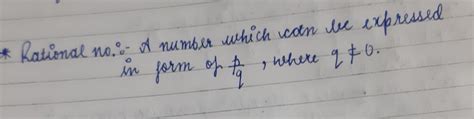 * Rational no.:- A number which can be expressed
in form of p/q, where q ≠ 0.